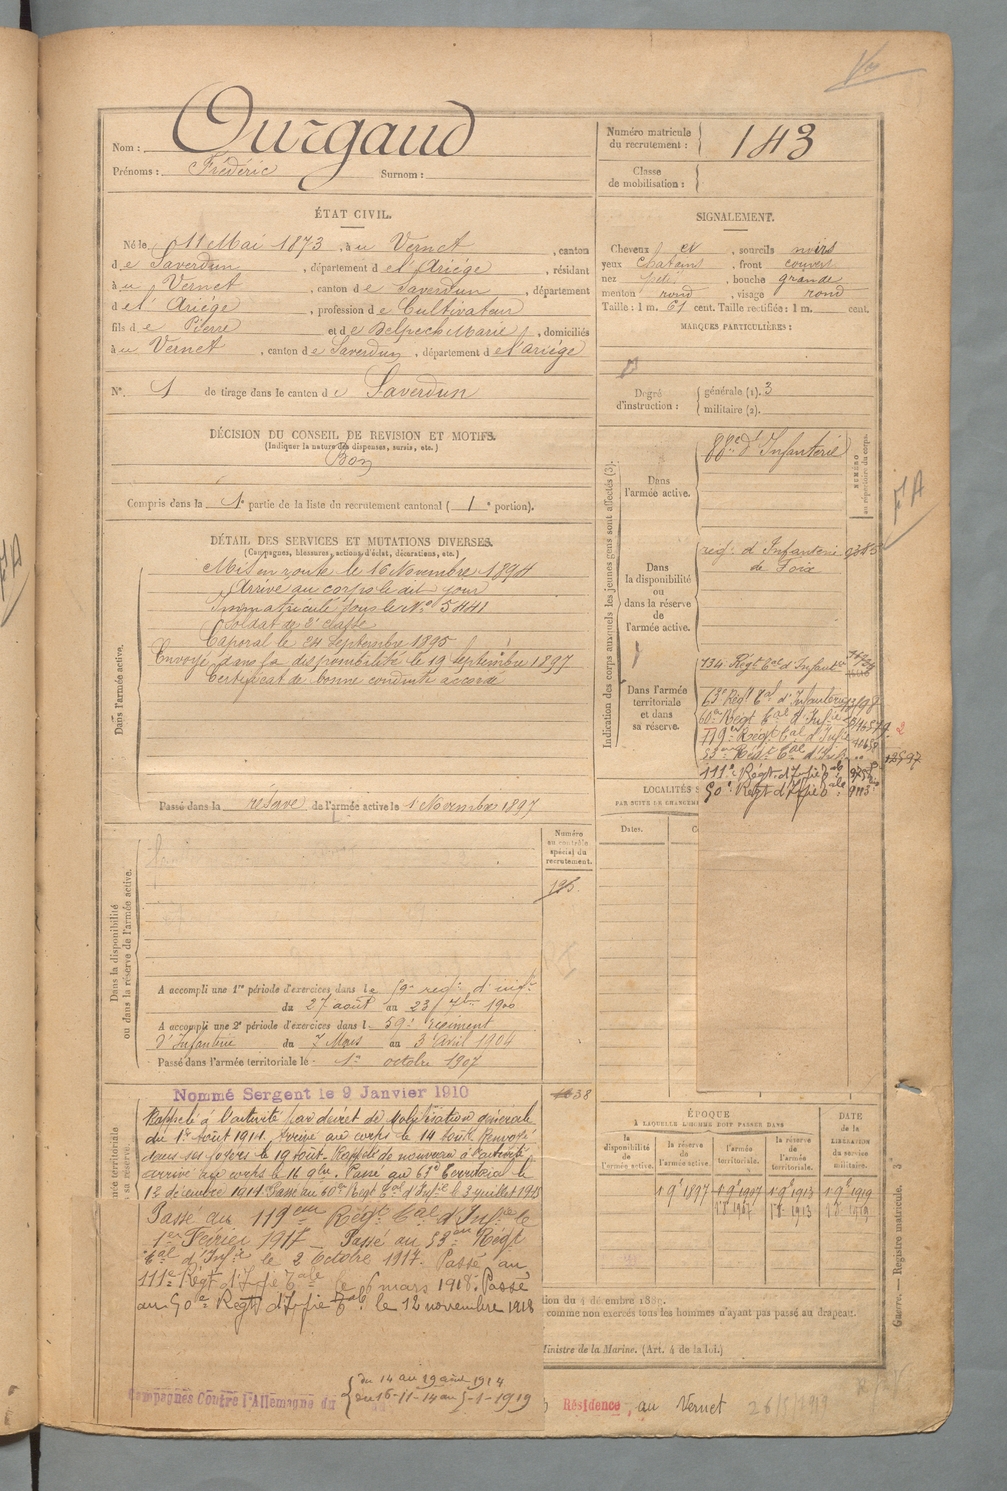 Nom : Ourgaud
Prénoms : Frédéric Surnom :
Numéro matricule du recrutement : 143
Classe de mobilisation :
ÉTAT CIVIL.
Né le 11 Mai 1873, à u Vernet, canton
d e Saverdun, département d e l'Ariège, résidant
à u Vernet, canton d e Saverdun, département
d e l'Ariège, profession d e Cultivateur
fils d e Pierre et d e Delpech Marie, domiciliés
à u Vernet, canton d e Saverdun, département d e l'Ariège
N° 1 de tirage dans le canton d e Saverdun
SIGNALEMENT.
Cheveux et, sourcils noirs
yeux chatains, front couvert
nez, bouche grande
menton rond, visage rond
Taille : 1 m. 61 cent. Taille rectifiée : 1 m. cent.
MARQUES PARTICULIÈRES :
Degré d'instruction : générale (1). 3
militaire (2).
DÉCISION DU CONSEIL DE REVISION ET MOTIFS.
(Indiquer la nature des dispenses, sursis, etc.)
Bon
Compris dans la 1e partie de la liste du recrutement cantonal ( 1 e portion).
DÉTAIL DES SERVICES ET MUTATIONS DIVERSES.
(Campagnes, blessures, actions d'éclat, décorations, etc.)
Dans l'armée active.
Mis en route le 16 Novembre 1894
Arrivé au corps le dit jour
Immatriculé sous le N° 5441
Soldat de 2e classe
Caporal le 24 Septembre 1895
Envoyé dans la disponibilité le 19 Septembre 1897
Certificat de bonne conduite accordé
Passé dans la réserve de l'armée active le 1 Novembre 1897
Indication des corps auxquels les jeunes gens sont affectés (3).
NUMÉRO au répertoire du corps.
Dans l'armée active.
88e d'Infanterie
Dans la disponibilité ou dans la réserve de l'armée active.
reg.t d'Infanterie
de Foix
Dans l'armée territoriale et dans sa réserve.
134 Régt tal d'Infant
63e Régt tal d'Infanterie
60e Régt tal d'Infie
119e Régt tal d'Infie
53e Régt tal d'Inf
111e Régt d'Infie tale
50e Régt d'Infie tale 9113
LOCALITÉS S
PAR SUITE DE CHANGEMEN
Dates.
Dans la disponibilité ou dans la réserve de l'armée active.
Numéro au contrôle spécial du recrutement.
A accompli une 1re période d'exercices dans le 59e régt d'inf.ie
du 27 août au 23 7bre 1900
A accompli une 2e période d'exercices dans l 59e régiment
d'Infanterie du 7 Mars au 3 Avril 1904
Passé dans l'armée territoriale le 1er octobre 1907
Nommé Sergent le 9 Janvier 1910
Rappelé à l'activité par décret de mobilisation générale
du 1er Août 1914. Arrivé au corps le 14 août. Renvoyé
dans ses foyers le 19 août. Rappelé de nouveau à l'activité
arrivé au corps le 16 9bre. Passé au 63e Territorial le
12 décembre 1914. Passé au 60e Régt tal d'Infie le 3 juillet 1915
Passé au 119eme Régt tal d'Infie le
1er Février 1917. Passé au 53eme Régt
tal d'Infie le 2 Octobre 1917. Passé au
111e Régt d'Infie tale le 6 mars 1918. Passé
au 50e Régt d'Infie tale le 12 novembre 1918
Campagnes Contre l'Allemagne du
du 14 au 19 août 1914
du 16-11-14 au 5-1-1919
ÉPOQUE
À LAQUELLE L'HOMME DOIT PASSER DANS
la disponibilité de l'armée active.
la réserve de l'armée active.
l'armée territoriale.
la réserve de l'armée territoriale.
DATE de la LIBÉRATION du service militaire.
1 9e 1897
1 9e 1907
1 9e 1913
1 9e 1919
tion du 4 décembre 1889.
comme non exercés tous les hommes n'ayant pas passé au drapeau.
Ministre de la Marine. (Art. 4 de la loi.)
Résidence au Vernet
Guerre. — Registre matricule. 3